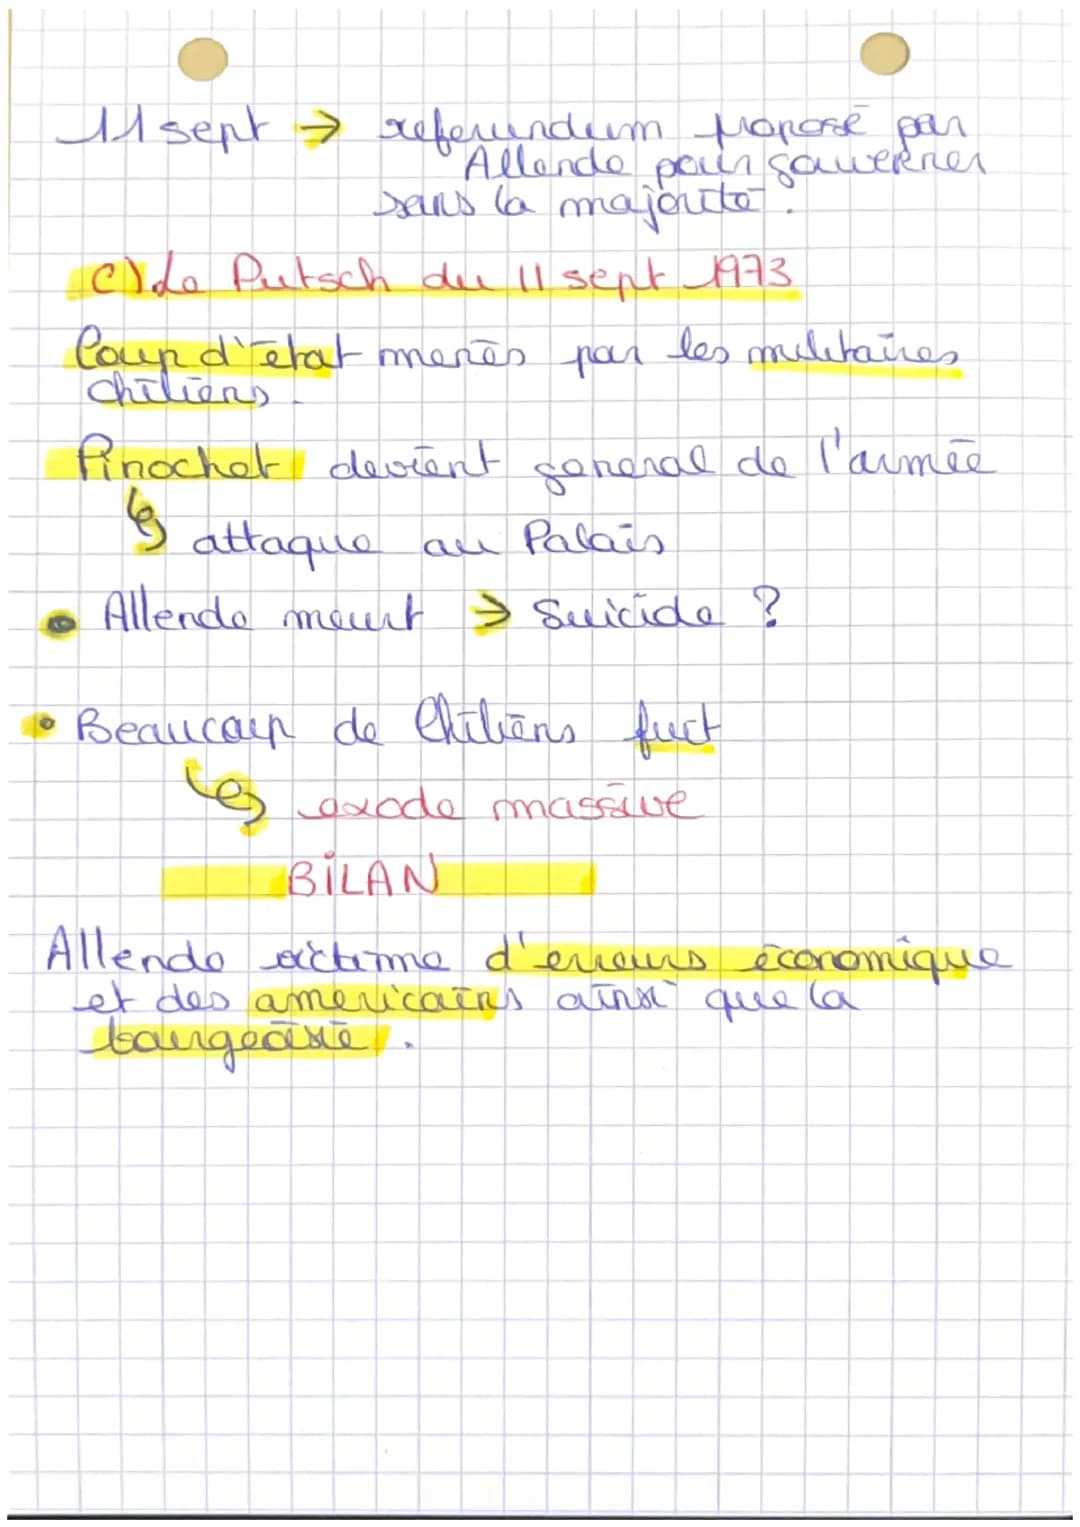 11 sept → referundum proposé par
Allende pour gouverner
sans la majorité.
c) Le Putsch du 11 sept 1973
Coup d'état menés par les militaires
chiliens.
Pinochet devient general de l'armée
attaque au Palais
Allende meurt → Suicide ?
Beaucoup de Chiliens fuct
exode massive
BILAN
Allende victime d'erreurs économique
et des americains ainsi que la
bourgeoisie.